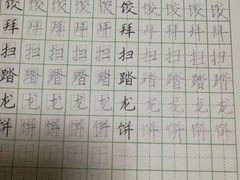 饺 饺 饺 饺 饺 饺 饺 饺 饺
拜 拜 拜 拜 拜 拜 拜 拜 拜
扫 扫 扫 扫 扫 扫 扫 扫 扫
踏 踏 踏 踏 踏 踏 踏 踏 踏
龙 龙 龙 龙 龙 龙 龙 龙 龙
饼 饼 饼 饼 饼 饼 饼 饼 饼